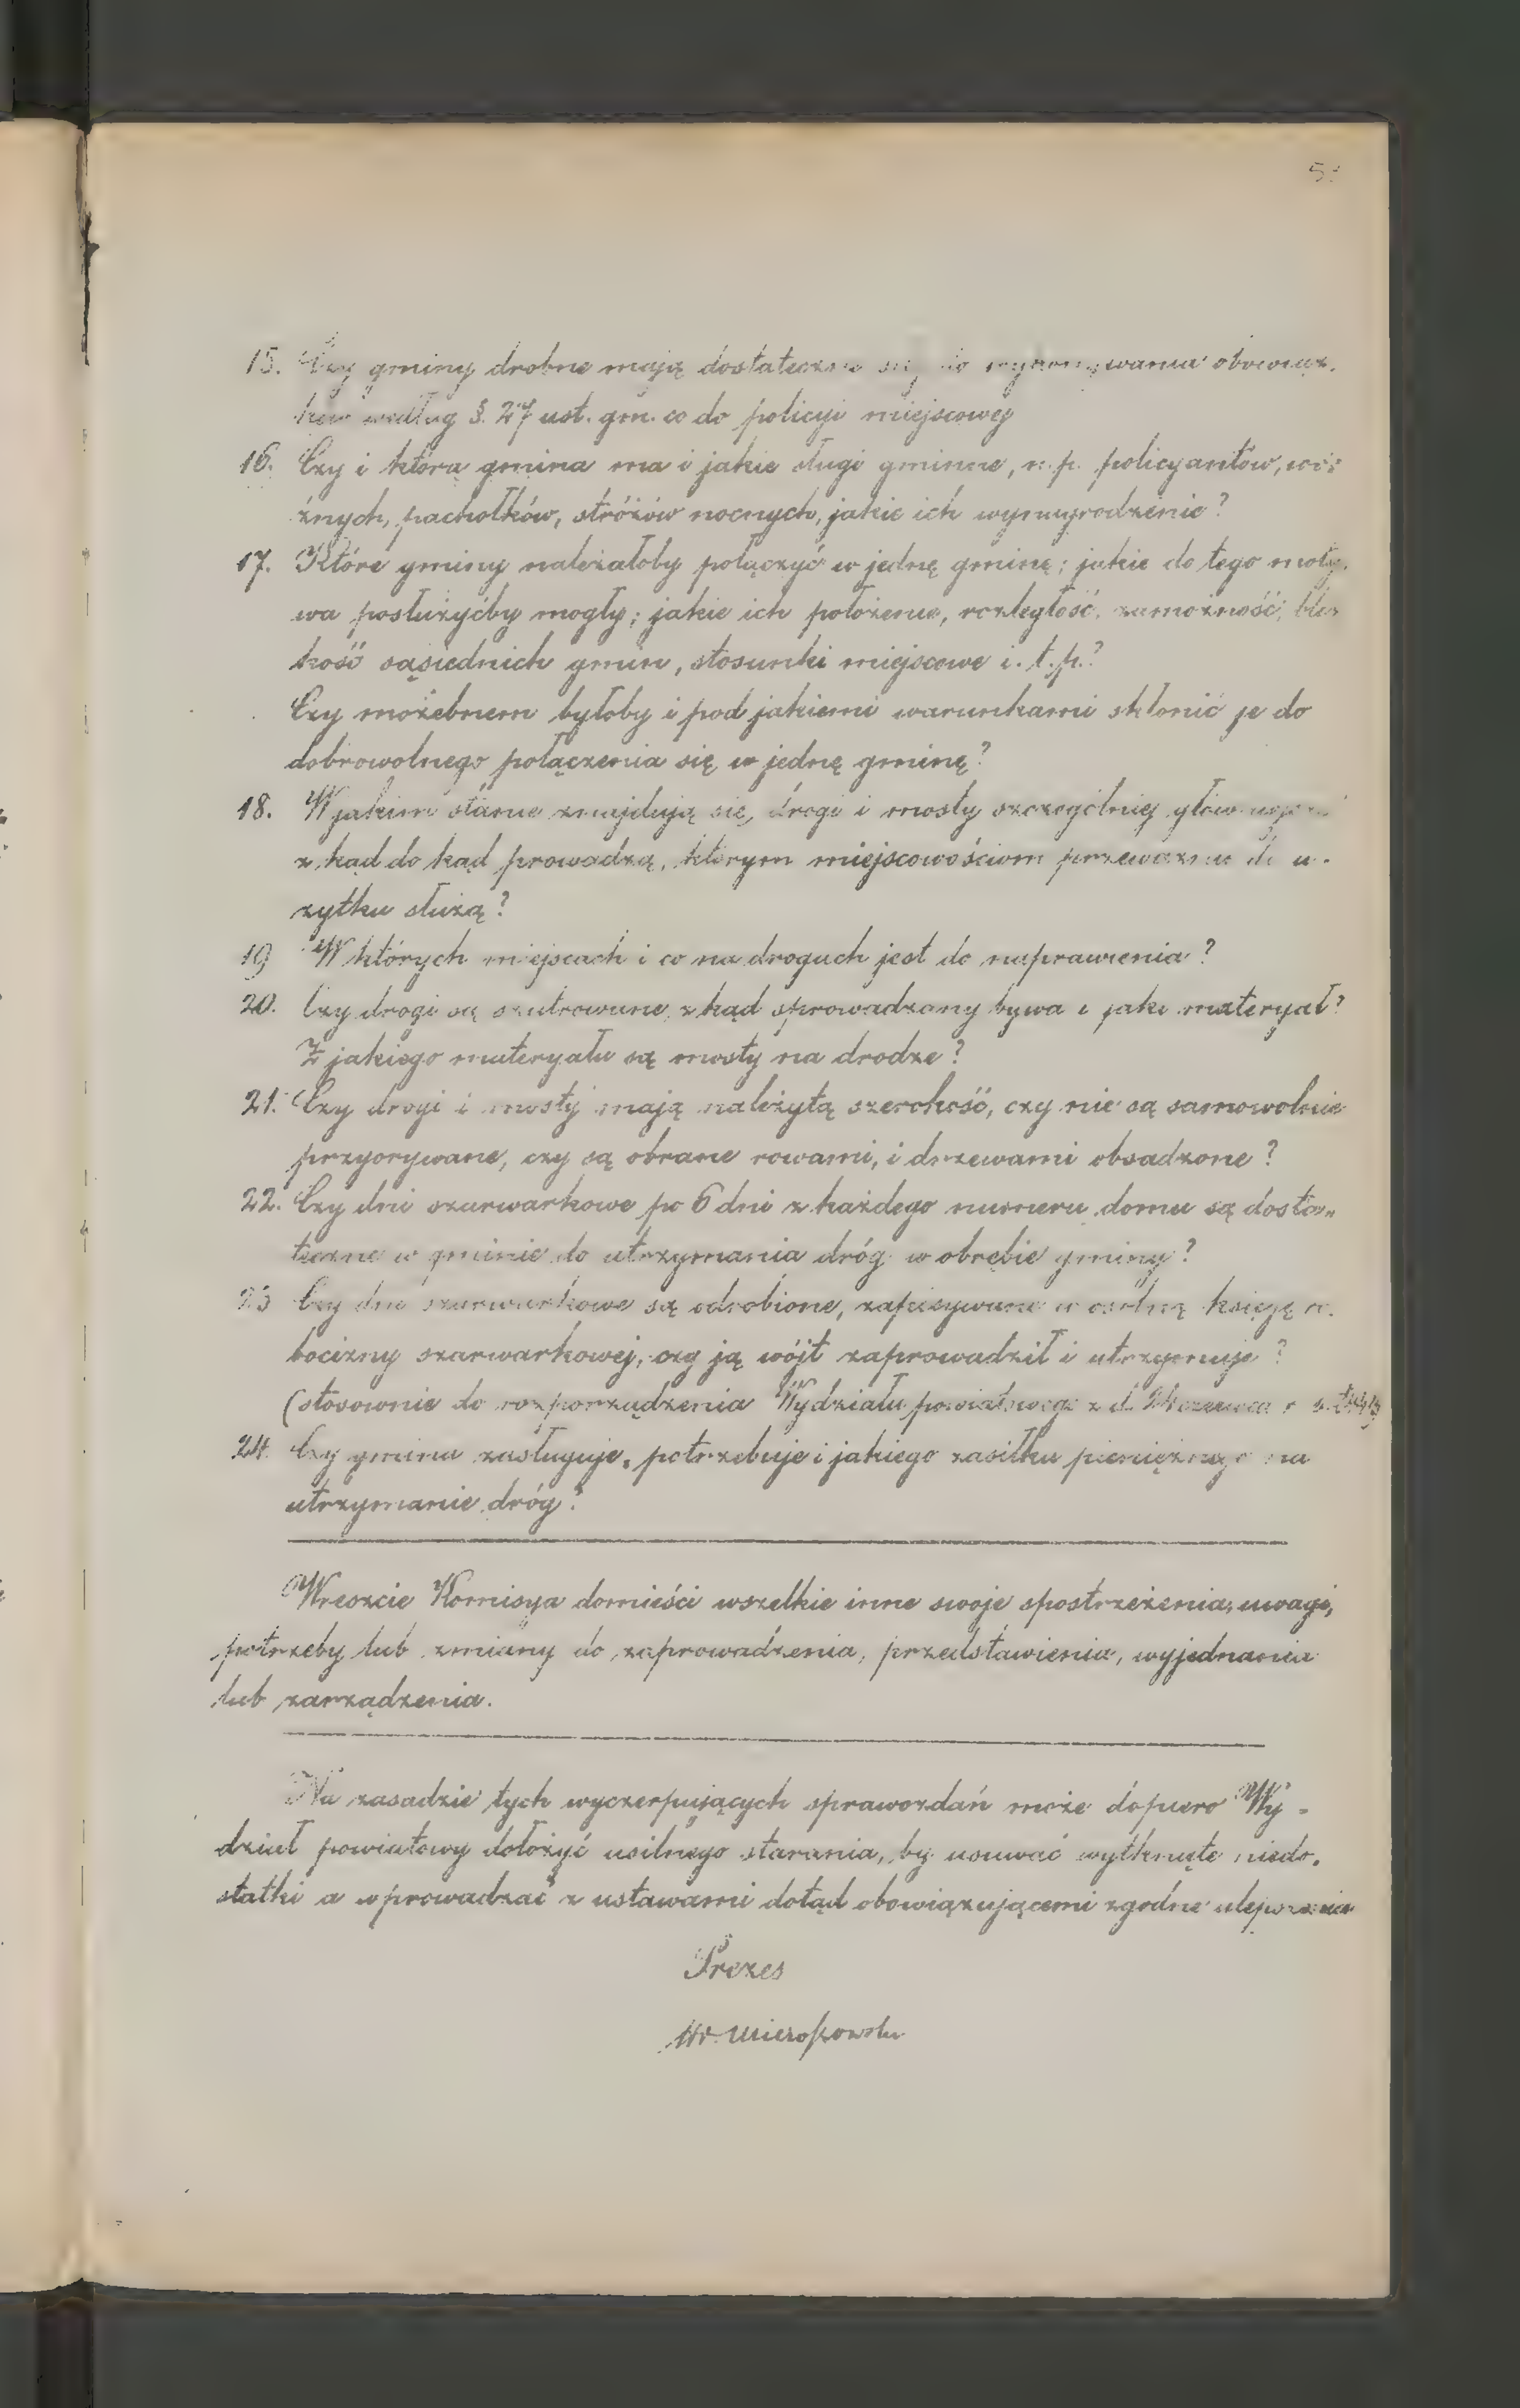 15. Czy gminy drobne mają dostateczne siły do wykonywania obowiąz-
ków według §. 27 ust. gm. co do policyi miejscowej
16. Czy i która gmina ma i jakie sługi gminne, n. p. policyantów, woź-
źnych, pachołków, stróżów nocnych, jakie ich wynagrodzenie?
17. Które gminy należałoby połączyć w jedną gminę; jakie do tego moty-
wa posłużyćby mogły; jakie ich położenie, rozległość, zamożność, bliz-
kość sąsiednich gmin, stosunki miejscowe i. t. p.?
Czy możebnem byłoby i pod jakiemi warunkami skłonić je do
dobrowolnego połączenia się w jednę gminę?
18. W jakim stanie znajdują się drogi i mosty szczególniej
z kąd do kąd prowadzą, którym miejscowościom przeważnie do u-
żytku służą?
19 W których miejscach i co na drogach jest do naprawienia?
20. Czy drogi są szutrowane, z kąd sprowadzany bywa i jaki materyał?
Z jakiego materyału są mosty na drodze?
21. Czy drogi i mosty mają należytą szerokość, czy nie są samowolnie
przyorywane, czy są obrane rowami, i drzewami obsadzone?
22. Czy dni szarwarkowe po 6 dni z każdego numeru domu są dosta„
teczne w gminie do utrzymania dróg w obrębie gminy?
23 Czy dni szarwarkowe są odrobione, zapisywane w osobną księgę ro-
bocizny szarwarkowej, czy ją wójt zaprowadził i utrzymuje?
(stosownie do rozporządzenia Wydziału powiatowego z d.
24. Czy gmina zasługuje, potrzebuje i jakiego zasiłku pieniężnego na
utrzymanie dróg?
Wreszcie Komisya domieści wszelkie inne swoje spostrzeżenia, uwagi,
potrzeby lub zmiany do zaprowadzenia, przedstawienia, wyjednania
lub zarządzenia.
Na zasadzie tych wyczerpujących sprawozdań może dopiero Wy-
dział powiatowy dołożyć usilnego starania, by usuwać wytknięte niedo-
statki a wprowadzać z ustawami dotąd obowiązującemi zgodne ulepszenia
Prezes